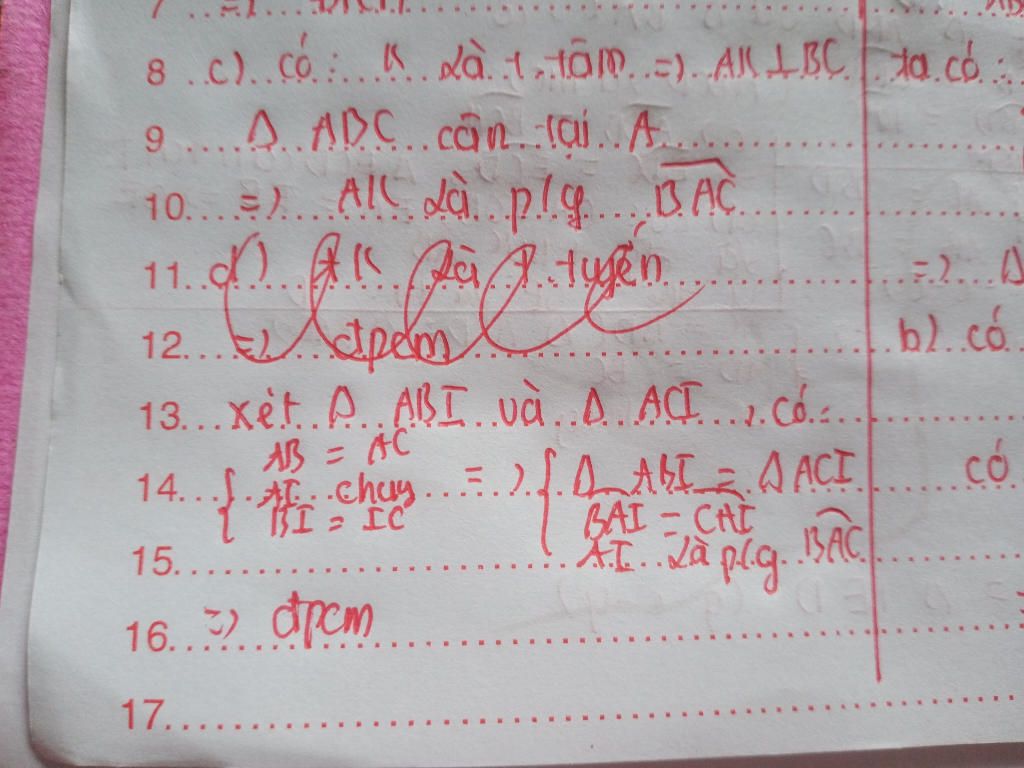 8 c) có: K là t. tâm => AK⊥BC
9 Δ ABC cân tại A
10 => AK là p/g BAC
11 d) AK là t. tuyến
12 => đpcm
13 xét Δ ABI và Δ ACI, có:
AB = AC
14 { AI chug => { Δ ABI = Δ ACI
BI = IC BAI = CAI
15 AI là p/g BAC
16 => đpcm
17
ta có:
=> Δ
b) có
có